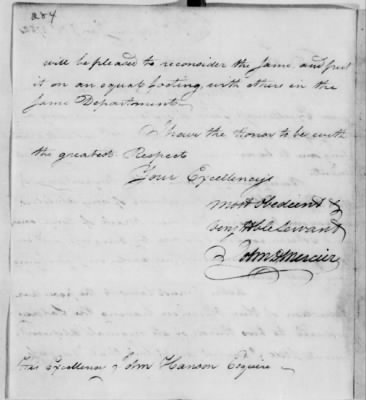 284
will be pleased to reconsider the same and put
it on an equal footing with others in the
same Department
I have the honor to be with
the greatest Respect
Your Excellency's
most Obedient &
very Hble Servant
John D Mercier
His Excellency John Hanson Esquire